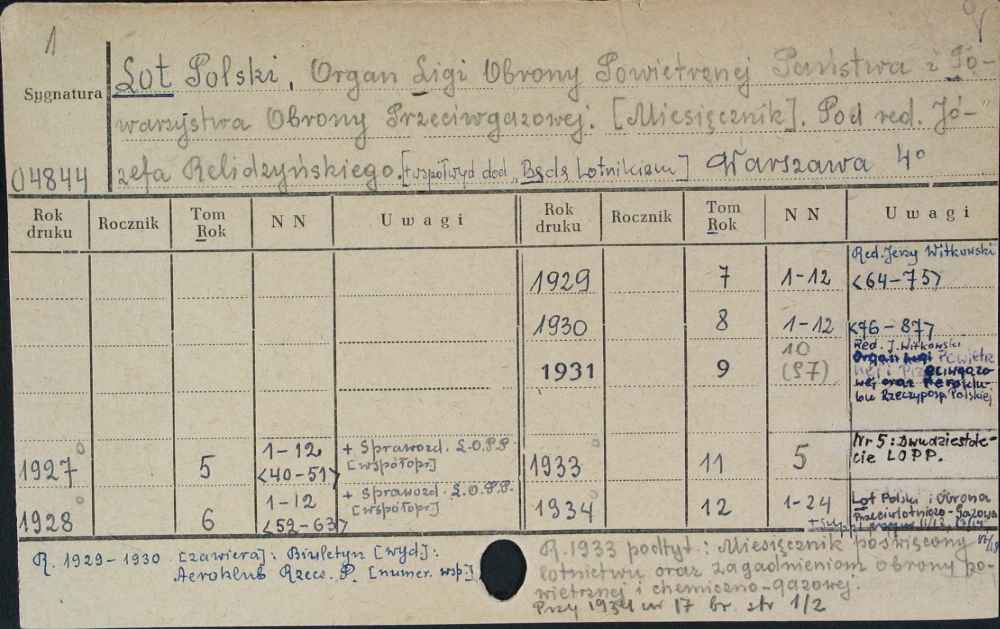 1
Sygnatura
Lot Polski, Organ Ligi Obrony Powietrznej Państwa i To-
warzystwa Obrony Przeciwgazowej. [Miesięcznik]. Pod red. Jó-
04844
zefa Relidzyńskiego. [+ współwyd dod „Bądź Lotnikiem] Warszawa 4°
Rok druku Rocznik Tom Rok N N Uwagi Rok druku Rocznik Tom Rok N N Uwagi
Red. Jerzy Witkowski
1929 7 1-12 <64-75>
1930 8 1-12 <76-87>
1931 9 10 (97)
Red. J. Witkowski
Organ Ligi Powietrz
nej i Przeciwgazo-
wej oraz Aeroklu-
bu Rzeczyposp. Polskiej
1927 5 1-12 <40-51> + Sprawozd. L.O.P.P. [współopr]
1933 11 5 Nr 5: Dwudziestole-
cie LOPP.
1928 6 1-12 <52-63> + Sprawozd. L.O.P.P. [współopr]
1934 12 1-24 Lot Polski i Obrona
Przeciwlotniczo-Gazowa
R. 1929-1930 [zawiera]: Biuletyn [wyd]:
Aeroklub Rzecz. P. [numer. wsp]
R. 1933 podtyt.: Miesięcznik poświęcony
lotnictwu oraz zagadnieniom obrony po-
wietrznej i chemiczno-gazowej.
Przy 1934 nr 17 br. str 1/2